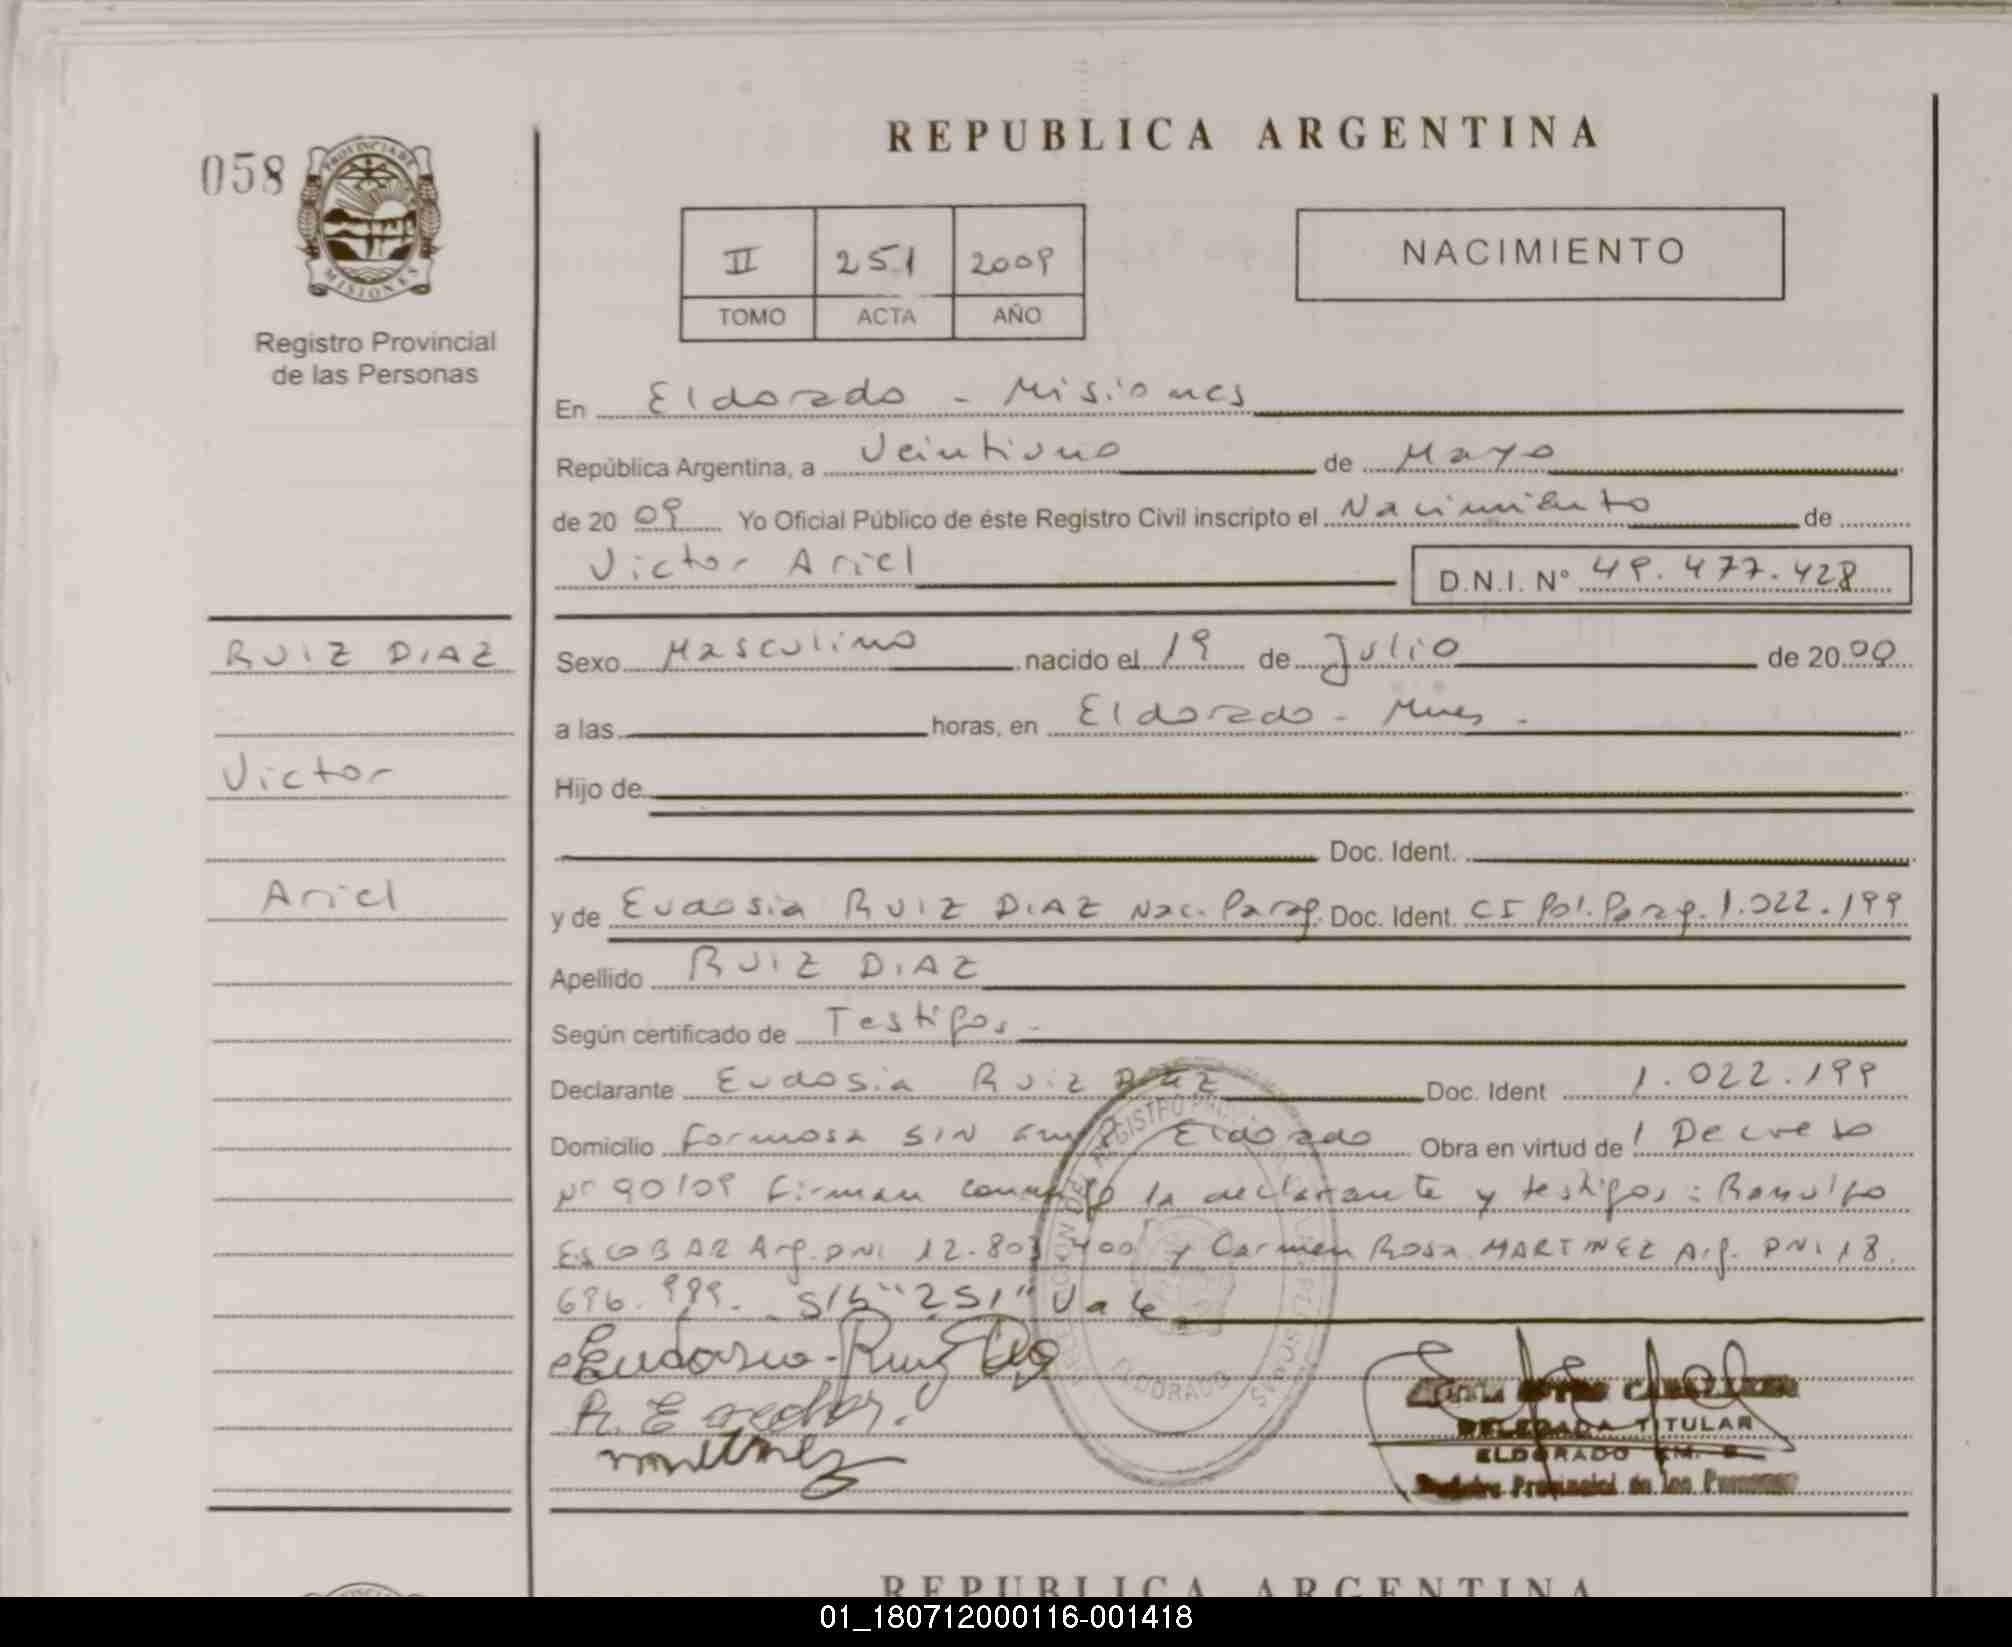 058
PROVINCIA DE
MISIONES
Registro Provincial
de las Personas
REPUBLICA ARGENTINA
II 251 2009
TOMO ACTA AÑO
NACIMIENTO
En Eldorado - Misiones
República Argentina, a Veintiuno de Mayo
de 20 09 Yo Oficial Público de éste Registro Civil inscripto el Nacimiento de
Victor Ariel D.N.I. N° 49.477.428
RUIZ DIAZ
Victor
Ariel
Sexo Masculino nacido el 19 de Julio de 20 00
a las horas, en Eldorado - Mnes.
Hijo de
Doc. Ident.
y de Eudosia RUIZ DIAZ Nac. Parag. Doc. Ident. CI Pol. Parag. 1.022.199
Apellido RUIZ DIAZ
Según certificado de Testigos.
Declarante Eudosia Ruiz Diaz Doc. Ident 1.022.199
Domicilio Formosa SIN Eldorado Obra en virtud de Decreto
Nº 90/09 Firman conmigo la declarante y testigos: Ranulfo
ESCOBAR Arg. DNI 12.803.400 y Carmen Rosa MARTINEZ Arg. DNI 18.
696.999. S/b "251" Vale
Eudosia Ruiz Diaz
R. Escobar.
Martinez
ELDORADO
DELEGADA TITULAR
ELDORADO KM.
Registro Provincial de las Personas
REPUBLICA ARGENTINA
01_180712000116-001418